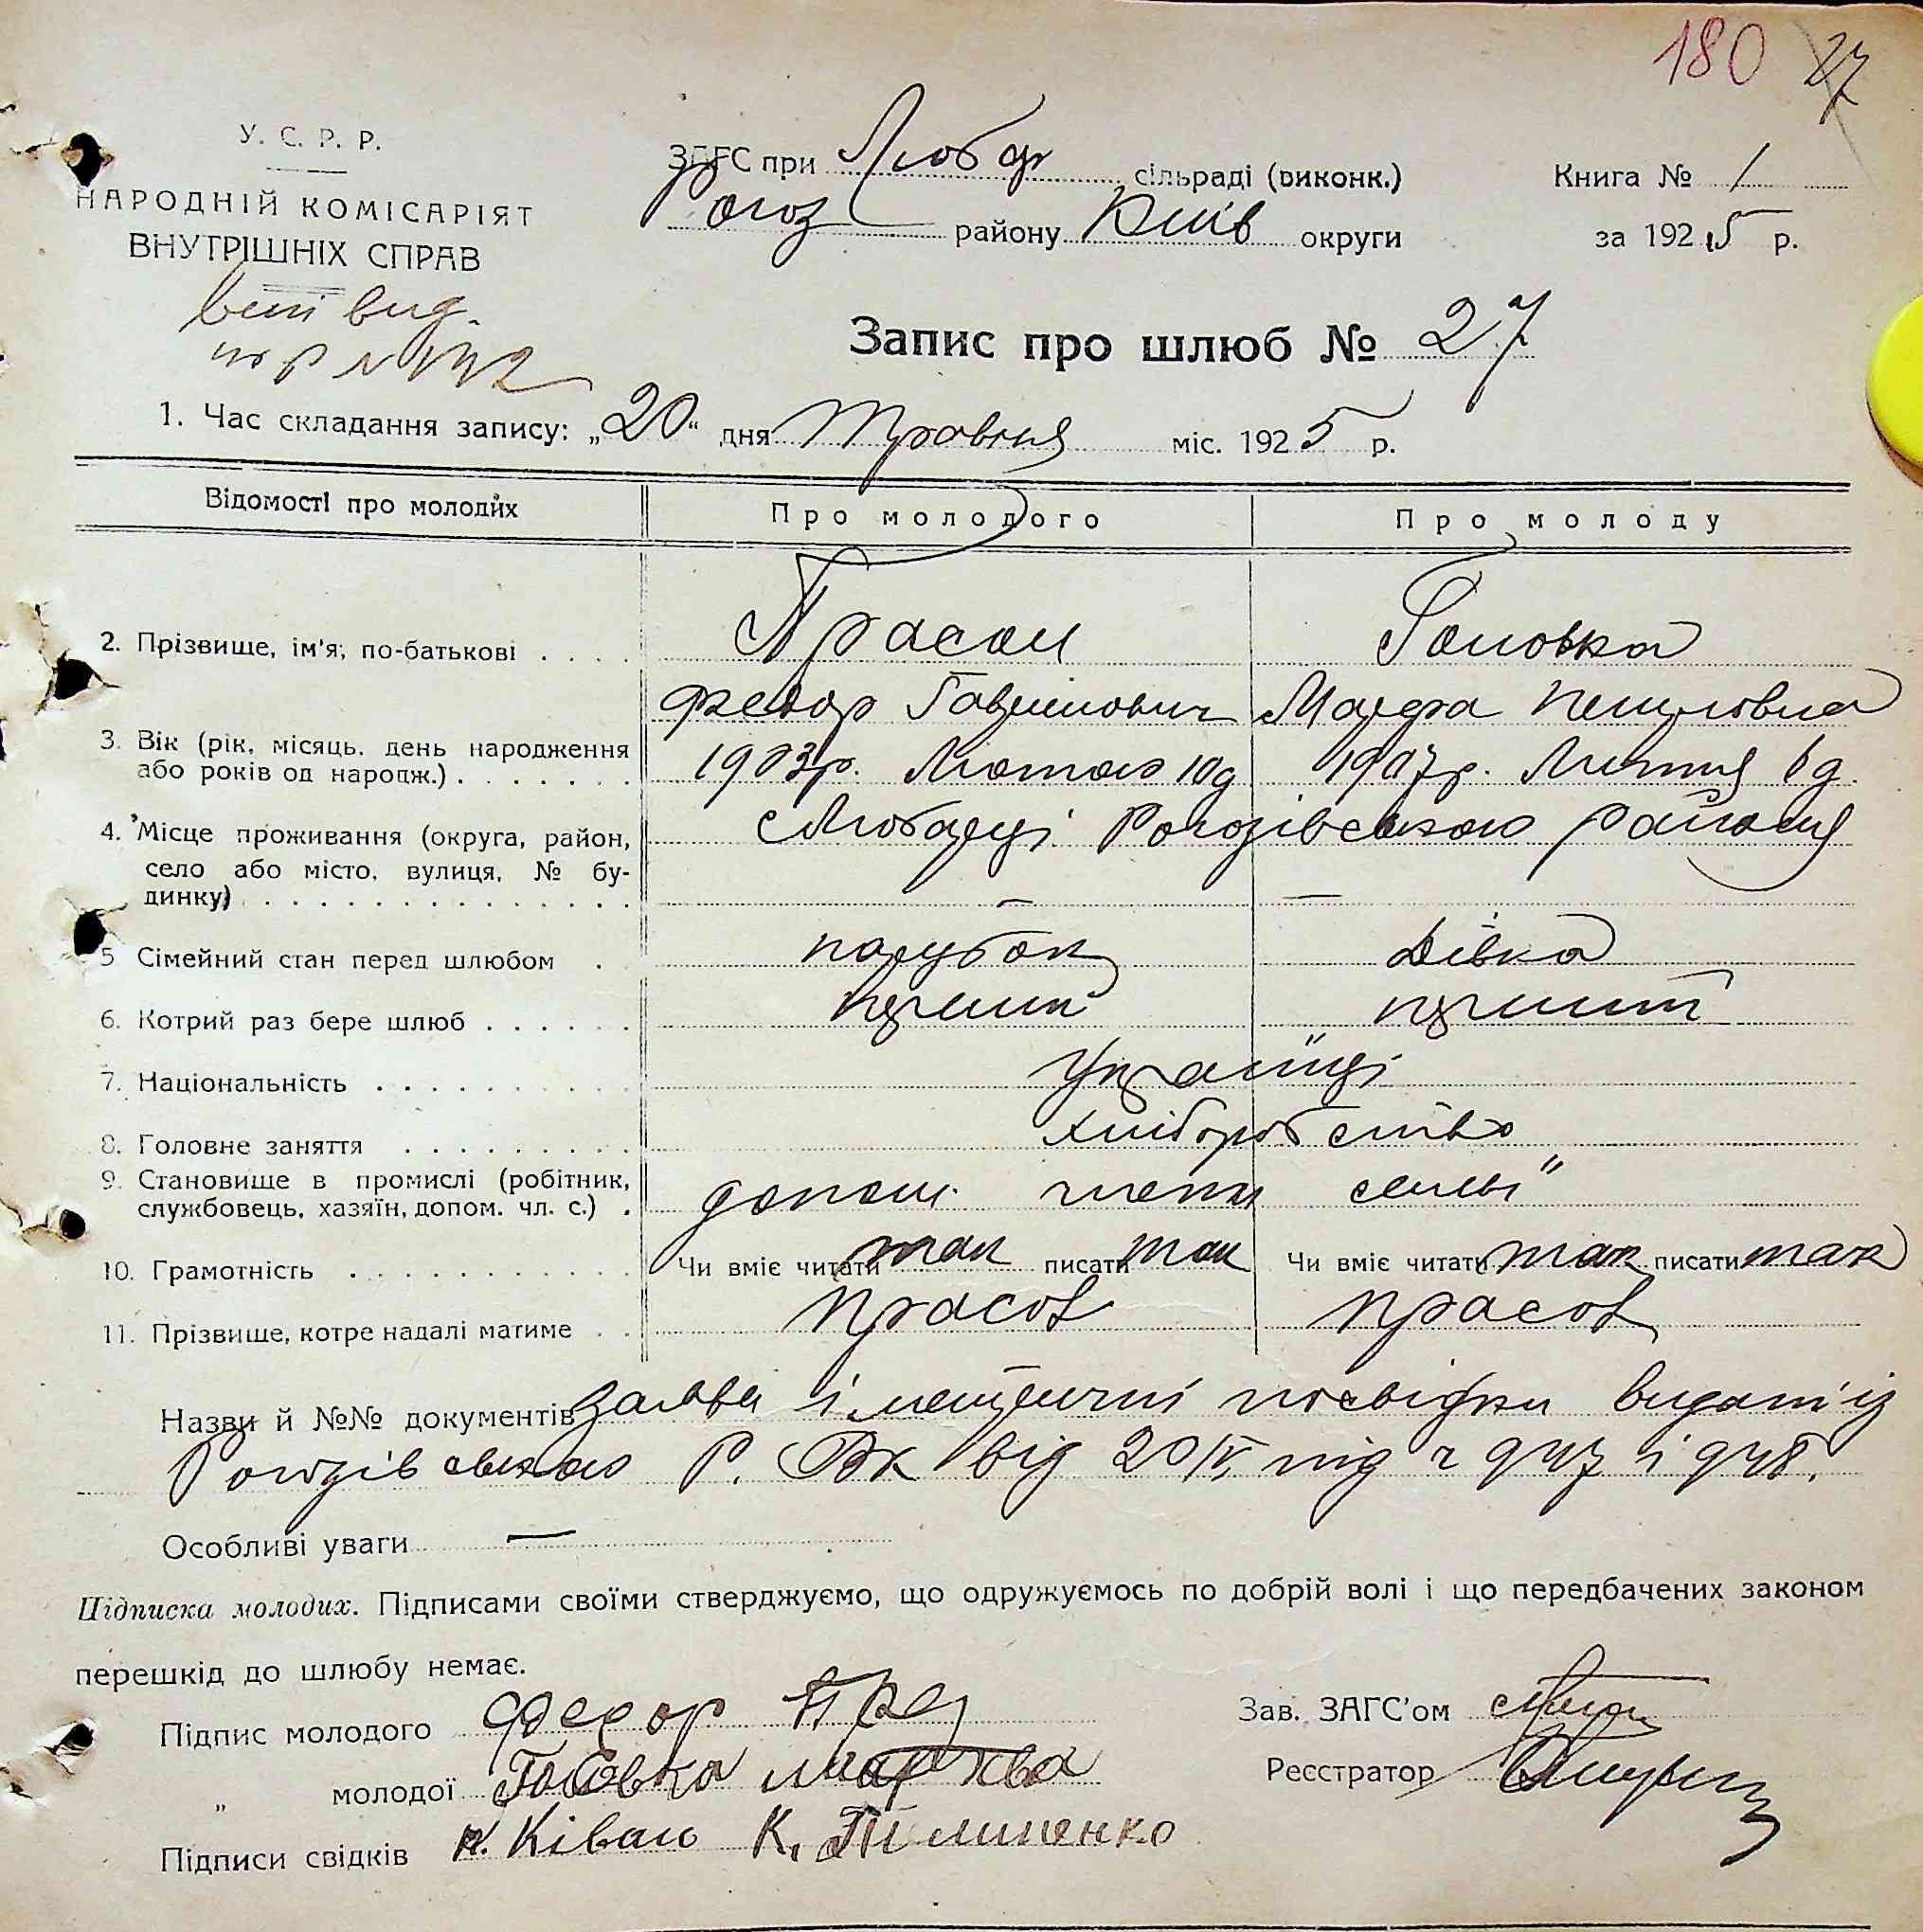 180 27
У. С. Р. Р.
НАРОДНІЙ КОМІСАРІЯТ
ВНУТРІШНІХ СПРАВ
ЗАГС при Любар сільраді (виконк.)
Рогоз району Київ округи
Книга № 1
за 1925 р.
вип вид.
Запис про шлюб № 27
1. Час складання запису: „20“ дня Травня міс. 1925 р.
Відомості про молодих Про молодого Про молоду
2. Прізвище, ім'я, по-батькові . . . . Прасол Головка
Федор Гаврилович Марфа
3. Вік (рік, місяць, день народження
або років од народж.) . . . . . . 1903р. Лютого 10д 1907р. Липня 6д.
4. Місце проживання (округа, район,
село або місто, вулиця, № бу-
динку) . . . . . . . . . . . . . . . — —
с Любарці Рогозівського району
5 Сімейний стан перед шлюбом . парубок Дівка
6. Котрий раз бере шлюб . . . . . . перший перший
7. Національність . . . . . . . . . . Українці
8. Головне заняття . . . . . . . . . Хліборобство
9. Становище в промислі (робітник,
службовець, хазяїн, допом. чл. с.) . допом. члени семьї
10. Грамотність . . . . . . . . . . . Чи вміє читати так писати так Чи вміє читати так писати так
11. Прізвище, котре надалі матиме . . Прасол Прасол
Назви й №№ документів Заява і метричні посвідки видані із
Рогозівського Р. ВК від 20/V під ч 947 і 948.
Особливі уваги —
Підписка молодих. Підписами своїми стверджуємо, що одружуємось по добрій волі і що передбачених законом
перешкід до шлюбу немає.
Підпис молодого Федор Пра
Зав. ЗАГС'ом
„ молодої Головка Мархва
Реєстратор
Підписи свідків К. Ківало К. Тимшенко